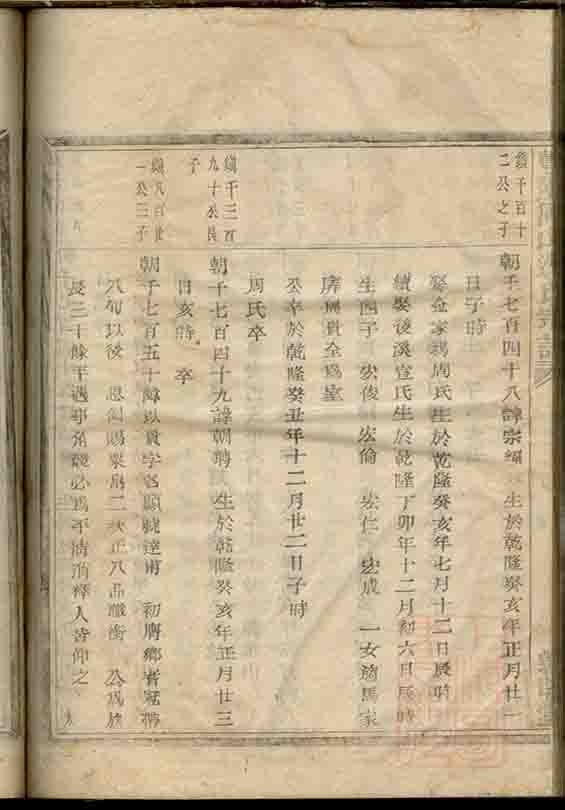 鎮千百十
二公之子
朝千七百四十八諱宗 生於乾隆癸亥年正月廿一
日子時
娶金家塢周氏生於乾隆癸亥年七月十二日辰時
續娶後溪宣氏生於乾隆丁卯年十二月初六日辰時
生四子 宏俊 宏倫 宏仁 宏成 一女適馬家
全為室
公卒於乾隆癸丑年十二月廿二日子時
周氏卒
鎮千三百
九十公長
子
朝千七百四十九諱朝聘 生於乾隆癸亥年正月廿三
日亥時 卒
鎮八百廿
一公三子
朝千七百五十諱以貫字名顯號達甫 初膺鄉耆冠帶
八旬以後 恩例賜粟帛二次正八品職銜 公為族
長二十餘年遇爭角競必為平情消釋人皆仰之